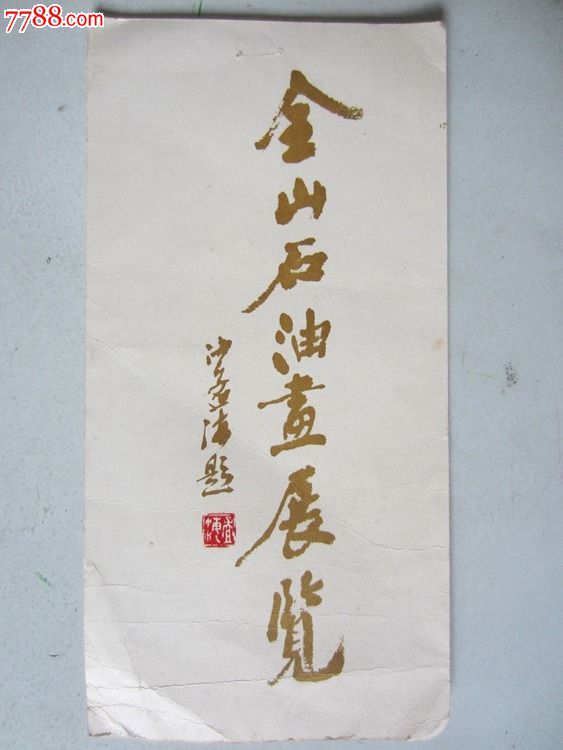 7788.com
全山石油畫展覽
沙孟海题
孟海